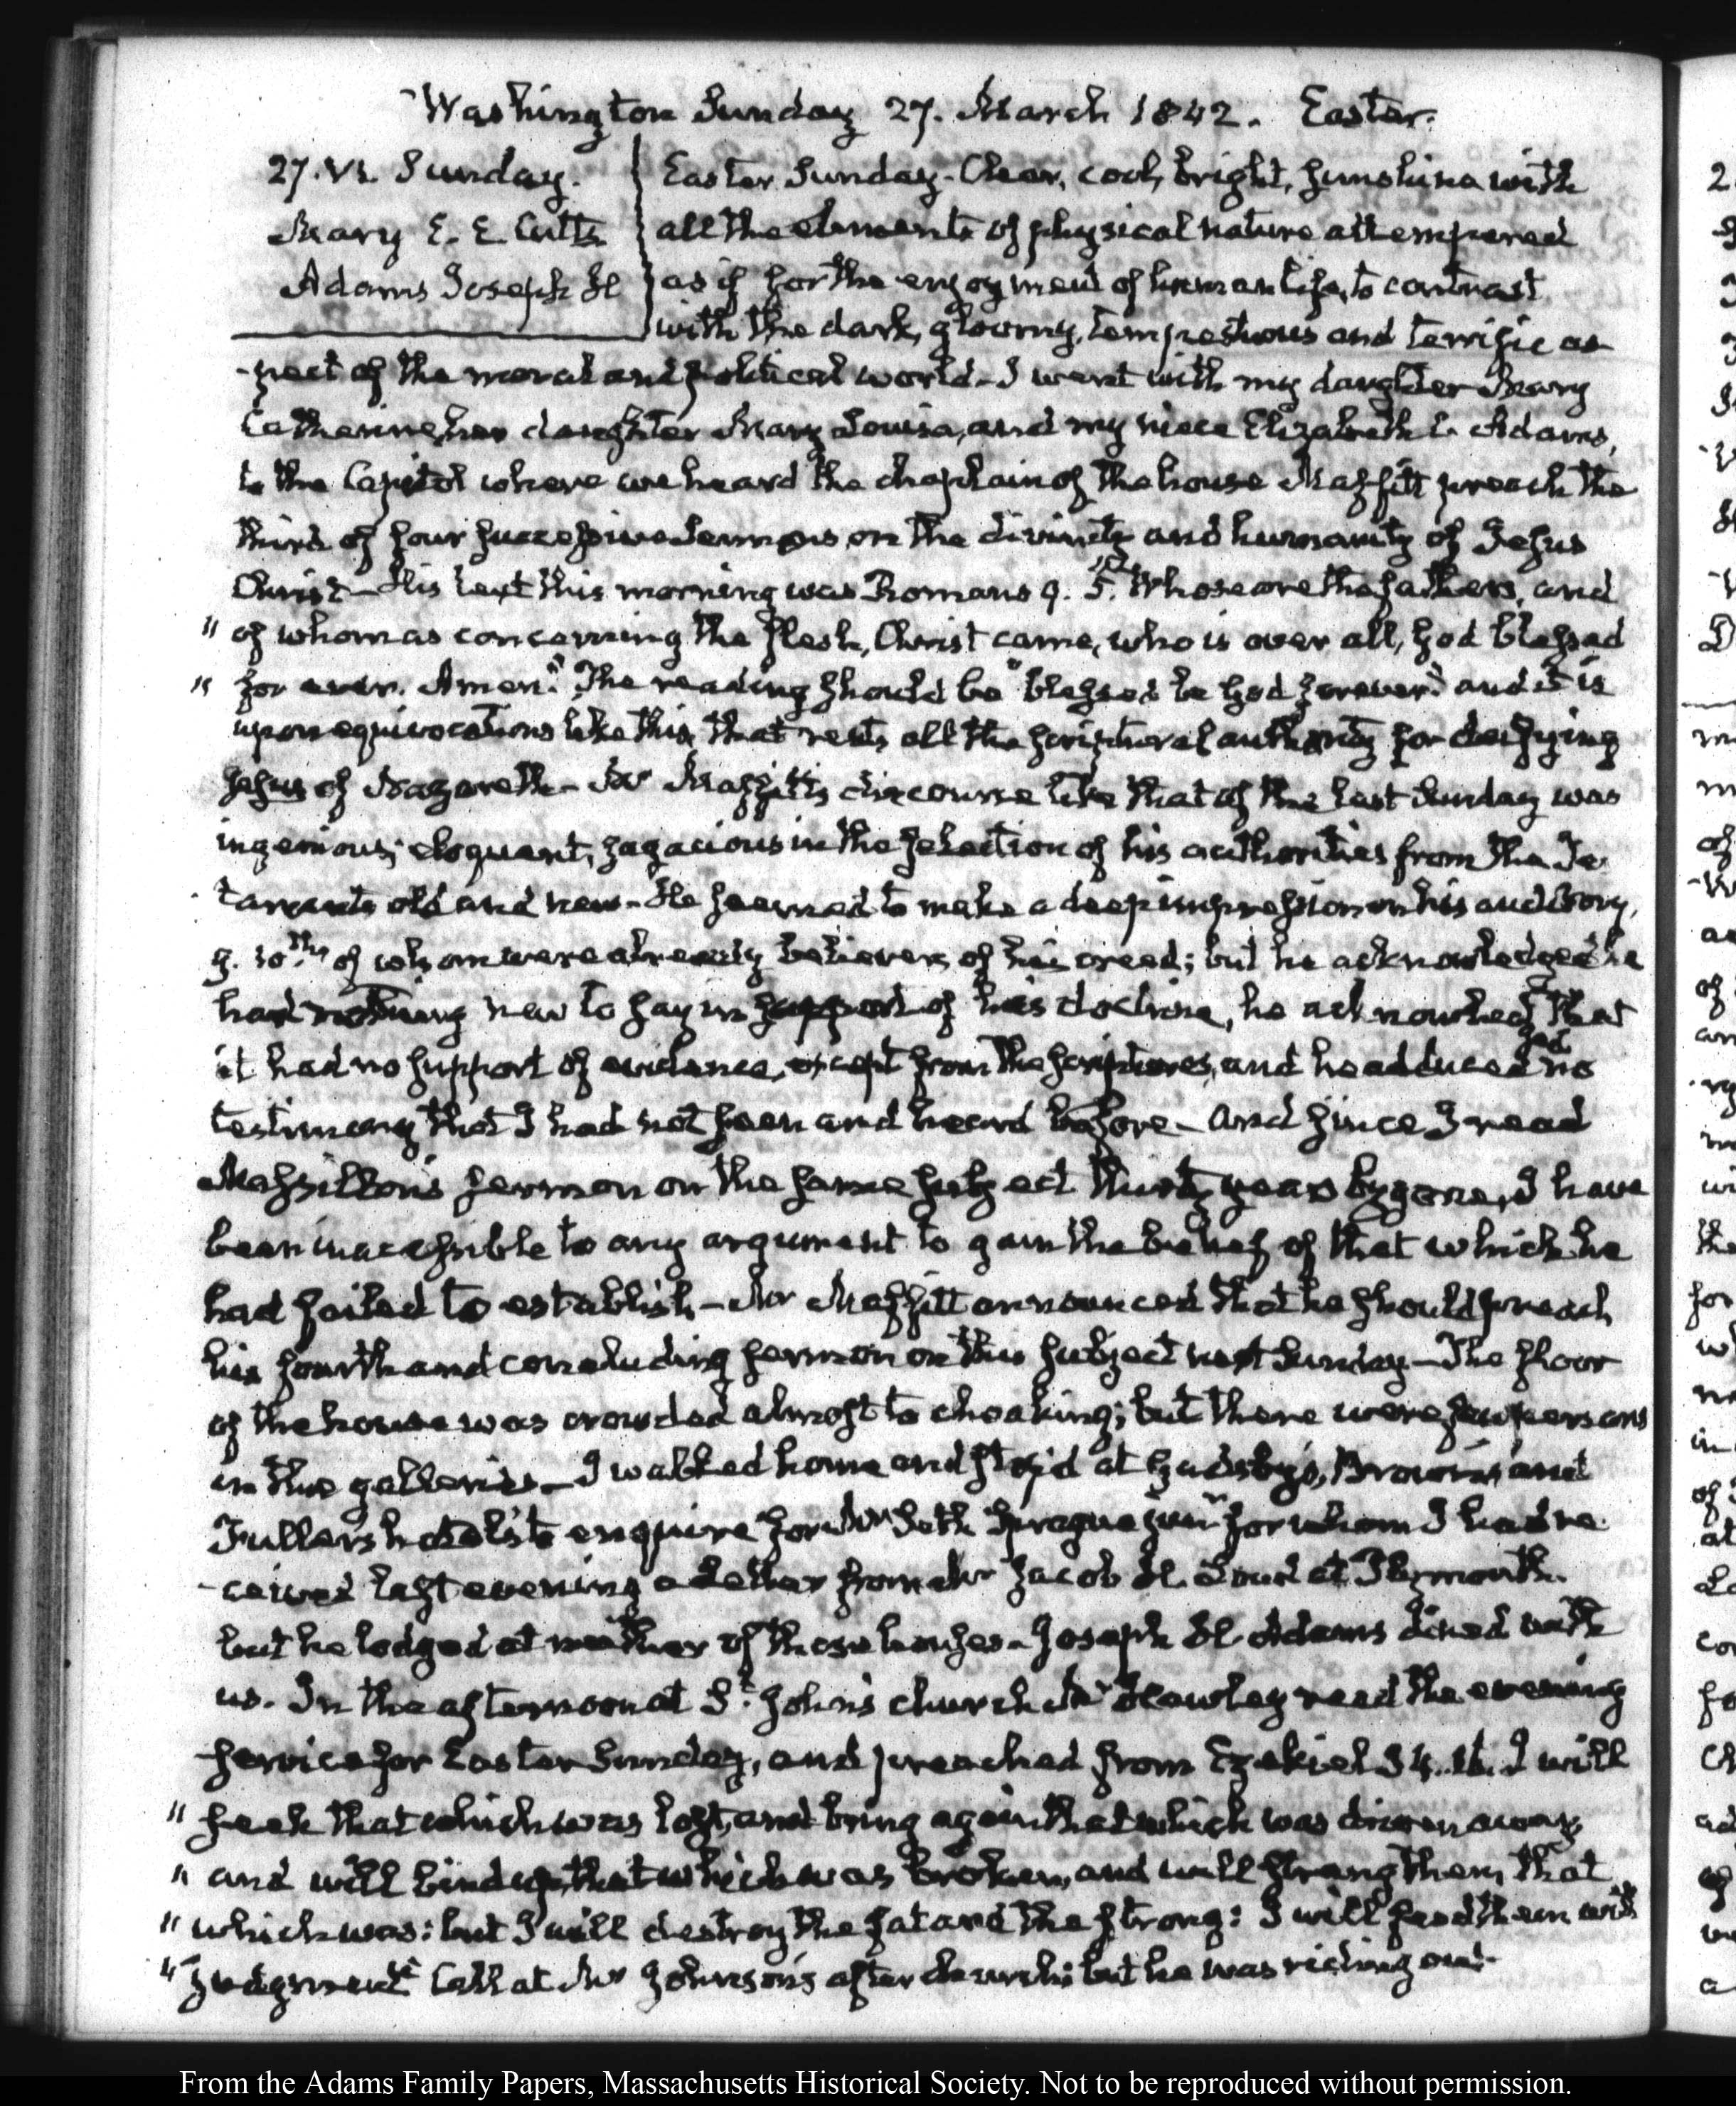 Washington Sunday 27. March 1842. Easter.
27. VI. Sunday.
Mary E. E. Cutts
Adams Joseph H
Easter Sunday - Clear, cool, bright, sunshine with
all the elements of physical nature attempered
as if for the enjoyment of human life, to contrast
with the dark, gloomy, tempestuous and terrific as-
-pect of the moral and political world - I went with my daughter Mary
Catherine, her daughter Mary Louisa, and my niece Elizabeth C. Adams,
to the Capitol where we heard the chaplain of the house Maffitt preach the
third of four successive Sermons on the divinity and humanity of Jesus
Christ - His text this morning was Romans 9. 5. "Whose are the fathers, and
" of whom as concerning the flesh, Christ came, who is over all, God blessed
" for ever. Amen." The reading should be "blessed be God forever" and it is
upon equivocations like this, that rests all the scriptural authority for deifying
Jesus of Nazareth - Mr Maffitt's discourse like that of the last Sunday was
ingenious, eloquent, sagacious in the selection of his authorities from the Tes-
taments old and new - He seemed to make a deep impression on his auditory,
9. 10ths of whom were already believers of his creed; but he acknowledged he
had nothing new to say in support of his doctrine, he acknowledged that
it had no support of evidence, except from the scriptures, and he adduced no
testimony that I had not seen and heard before - and since I read
Massillon's sermon on the same subject thirty years bygone, I have
been inaccessible to any argument to gain the belief of that which he
had failed to establish - Mr Maffitt announced that he should preach
his fourth and concluding sermon on this subject next Sunday - The floor
of the house was crowded almost to choaking; but there were few persons
in the galleries - I walked home and stop'd at Gadsby's, Brown's and
Fuller's hotels to enquire for Mr Seth Sprague junr for whom I had re-
-ceived last evening a letter from Mr Jacob H. Loud at Plymouth.
but he lodged at neither of those houses - Joseph H. Adams dined with
us. In the afternoon at St. John's church Mr Hawley read the evening
service for Easter Sunday, and preached from Ezekiel 34. 16. I will
" seek that which was lost, and bring again that which was driven away,
" and will bind up that which was broken, and will strengthen, that
" which was: but I will destroy the fat and the strong: I will feed them with
" judgment" Call at Mr Johnson's after church; but he was riding out.
From the Adams Family Papers, Massachusetts Historical Society. Not to be reproduced without permission.